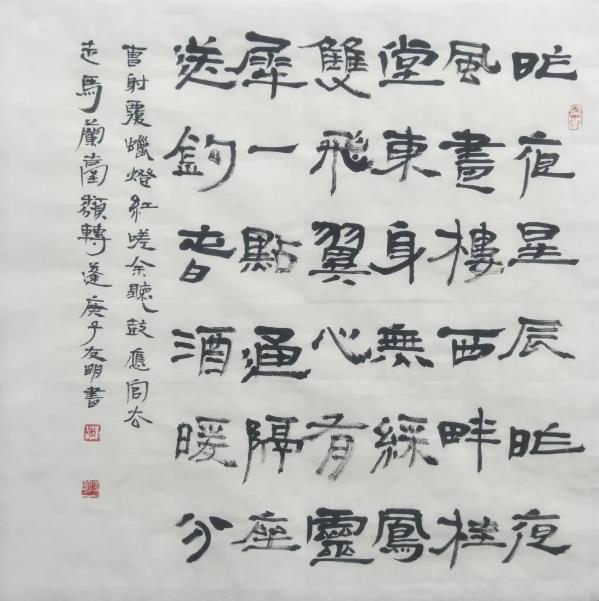 昨夜星辰昨夜
風畫樓西畔桂
堂東身無綵鳳
雙飛翼心有靈
犀一點通隔座
送鈎春酒暖分
曹射覆蠟燈紅嗟余聽鼓應官去
走馬蘭臺類轉蓬庚子友明書